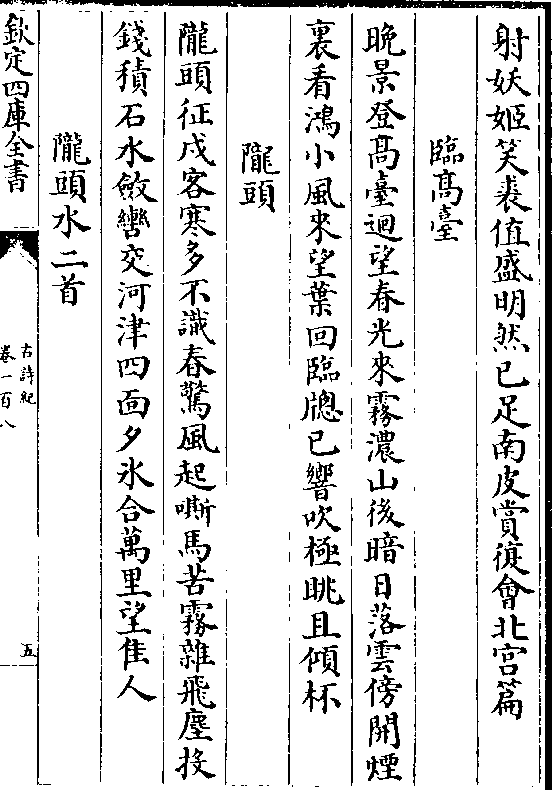 射妖姬笑裘值盛明然已足南皮賞復會北宮篇
臨髙臺
晚景登髙臺迴望春光來霧濃山後暗日落雲傍開煙
裏看鴻小風來望葉回臨牕已響吹極眺且傾杯
隴頭
隴頭征戍客寒多不識春驚風起嘶馬苦霧雜飛塵投
錢積石水斂轡交河津四面夕氷合萬里望佳人
隴頭水二首
欽定四庫全書
古詩紀
卷一百八
五